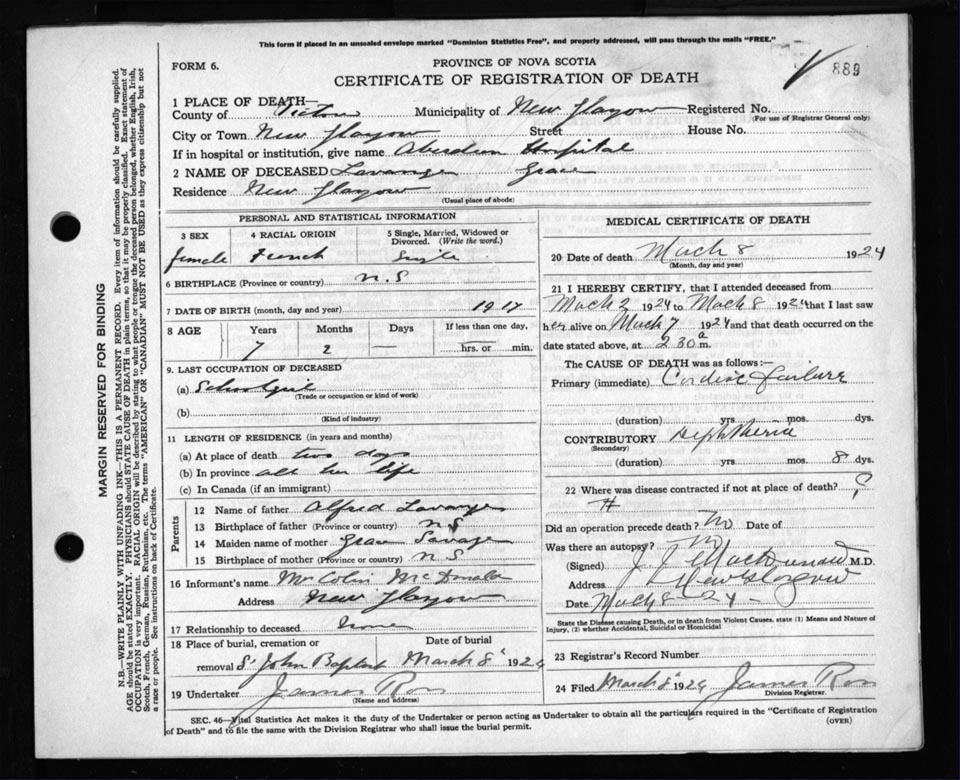 This form if placed in an unsealed envelope marked "Dominion Statistics Free", and properly addressed, will pass through the mails "FREE."
FORM 6.
PROVINCE OF NOVA SCOTIA
CERTIFICATE OF REGISTRATION OF DEATH
889
1 PLACE OF DEATH—
County of Pictou Municipality of New Glasgow Registered No.
(For use of Registrar General only)
City or Town New Glasgow Street House No.
If in hospital or institution, give name Aberdeen Hospital
2 NAME OF DECEASED Lavanger Grace
Residence New Glasgow
(Usual place of abode)
MARGIN RESERVED FOR BINDING
N.B.—WRITE PLAINLY WITH UNFADING INK—THIS IS A PERMANENT RECORD. Every item of information should be carefully supplied.
AGE should be stated EXACTLY. PHYSICIANS should STATE CAUSE OF DEATH in plain terms, so that it may be properly classified. Exact statement of
OCCUPATION is very important. RACIAL ORIGIN will be described by stating to what people or tongue the deceased person belonged, whether English, Irish,
Scotch, French, German, Russian, Ruthenian, etc. The terms "AMERICAN" OR "CANADIAN" MUST NOT BE USED as they express citizenship but not
a race or people. See instructions on back of Certificate.
PERSONAL AND STATISTICAL INFORMATION
3 SEX
4 RACIAL ORIGIN
5 Single, Married, Widowed or
Divorced. (Write the word.)
female French Single
6 BIRTHPLACE (Province or country) N.S
7 DATE OF BIRTH (month, day and year) 1917
8 AGE
Years Months Days If less than one day,
7 2 — hrs. or min.
9. LAST OCCUPATION OF DECEASED
(a) School girl
(Trade or occupation or kind of work)
(b)
(Kind of industry)
11 LENGTH OF RESIDENCE (in years and months)
(a) At place of death two days
(b) In province all her life
(c) In Canada (if an immigrant)
Parents
12 Name of father Alfred Lavanger
13 Birthplace of father (Province or country) N.S
14 Maiden name of mother Grace Savage
15 Birthplace of mother (Province or country) N S
16 Informant's name Mr Colin McDonald
Address New Glasgow
17 Relationship to deceased none
18 Place of burial, cremation or Date of burial
removal St John Baptist March 8 1924
19 Undertaker James Ross
(Name and address)
MEDICAL CERTIFICATE OF DEATH
20 Date of death March 8 1924
(Month, day and year)
21 I HEREBY CERTIFY, that I attended deceased from
March 2 1924 to March 8 1924 that I last saw
her alive on March 7 1924 and that death occurred on the
date stated above, at 2 30 a m.
The CAUSE OF DEATH was as follows:—
Primary (immediate) Cardiac failure
(duration) yrs. mos. dys.
CONTRIBUTORY Diphtheria
(Secondary)
(duration) yrs. mos. 8 dys.
22 Where was disease contracted if not at place of death? ?
Did an operation precede death? No Date of
Was there an autopsy? No
(Signed) M.D.
Address New Glasgow
Date March 8 - 24 -
State the Disease causing Death, or in death from Violent Causes, state (1) Means and Nature of
Injury, (2) whether Accidental, Suicidal or Homicidal
23 Registrar's Record Number
24 Filed March 8 1924 James Ross
Division Registrar.
SEC. 46—Vital Statistics Act makes it the duty of the Undertaker or person acting as Undertaker to obtain all the particulars required in the "Certificate of Registration
of Death" and to file the same with the Division Registrar who shall issue the burial permit.
(OVER)